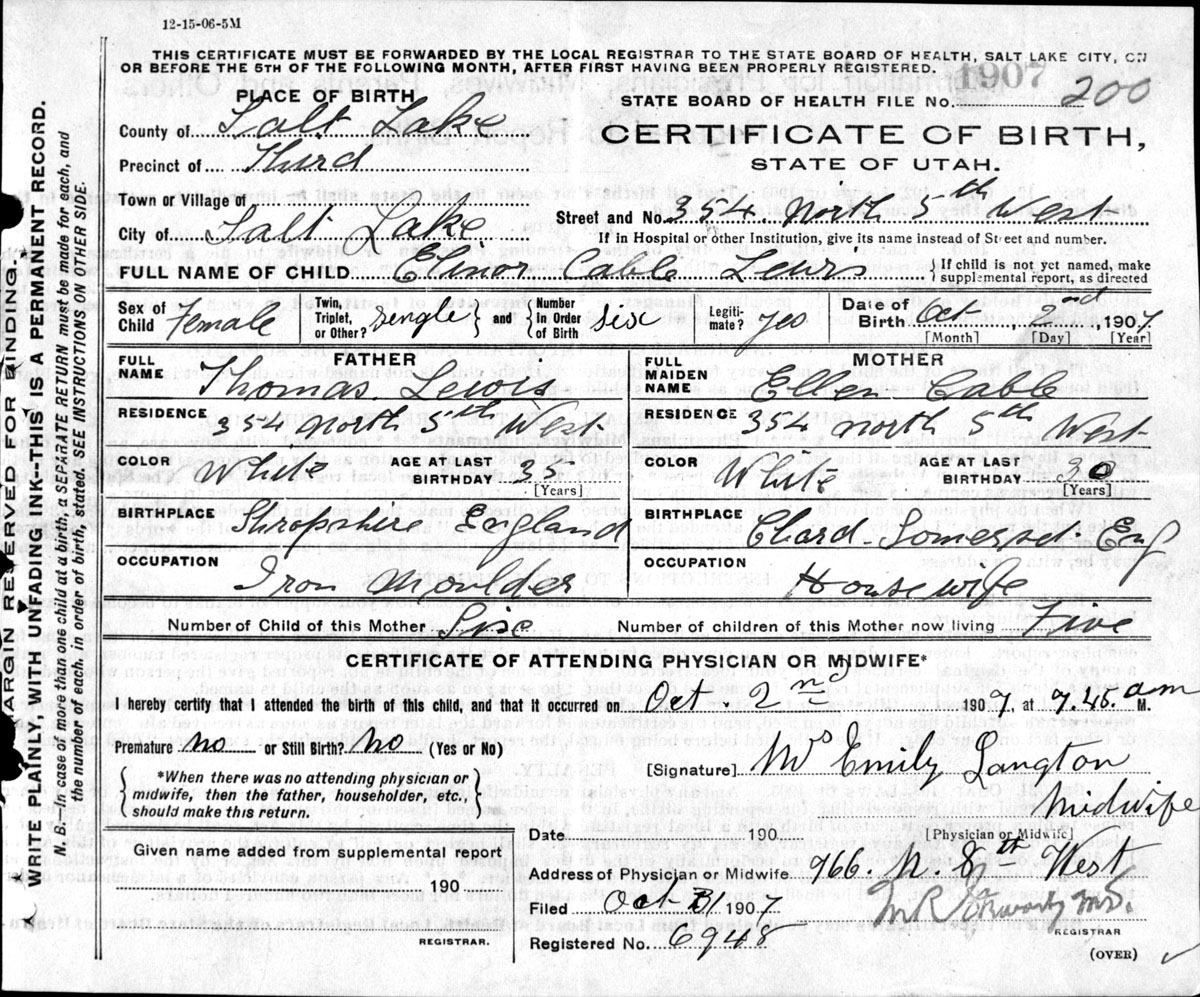 12-15-06-5M
THIS CERTIFICATE MUST BE FORWARDED BY THE LOCAL REGISTRAR TO THE STATE BOARD OF HEALTH, SALT LAKE CITY, ON
OR BEFORE THE 5TH OF THE FOLLOWING MONTH, AFTER FIRST HAVING BEEN PROPERLY REGISTERED.
1907
PLACE OF BIRTH
STATE BOARD OF HEALTH FILE No. 200
County of Salt Lake
CERTIFICATE OF BIRTH,
Precinct of Third
STATE OF UTAH.
Town or Village of
Street and No. 354 North 5th West
City of Salt Lake
If in Hospital or other Institution, give its name instead of Street and number.
FULL NAME OF CHILD Elinor Cable Lewis
{ If child is not yet named, make
supplemental report, as directed
Sex of Child Female
Twin, Triplet, or Other? single
and
Number In Order of Birth six
Legitimate? yes
Date of Birth Oct 2nd, 1907
[Month] [Day] [Year]
FATHER
FULL NAME Thomas Lewis
RESIDENCE 354 North 5th West
COLOR White
AGE AT LAST BIRTHDAY 35
[Years]
BIRTHPLACE Shropshire England
OCCUPATION Iron Moulder
MOTHER
FULL MAIDEN NAME Ellen Cable
RESIDENCE 354 North 5th West
COLOR White
AGE AT LAST BIRTHDAY 30
[Years]
BIRTHPLACE Chard Somerset Eng
OCCUPATION Housewife
Number of Child of this Mother Six
Number of children of this Mother now living Five
CERTIFICATE OF ATTENDING PHYSICIAN OR MIDWIFE*
I hereby certify that I attended the birth of this child, and that it occurred on Oct. 2nd 1907, at 7.45. am M.
Premature no or Still Birth? no (Yes or No)
*When there was no attending physician or
midwife, then the father, householder, etc.,
should make this return.
[Signature] Mrs Emily Langton
Midwife
[Physician or Midwife]
Date 190
Given name added from supplemental report
190
REGISTRAR.
Address of Physician or Midwife 966. N. 8th West
Filed Oct 31 1907
Registered No. 6948
REGISTRAR
(OVER)
MARGIN RESERVED FOR BINDING.
WRITE PLAINLY, WITH UNFADING INK--THIS IS A PERMANENT RECORD.
N. B.--In case of more than one child at a birth, a SEPARATE RETURN must be made for each, and
the number of each, in order of birth, stated. SEE INSTRUCTIONS ON OTHER SIDE.